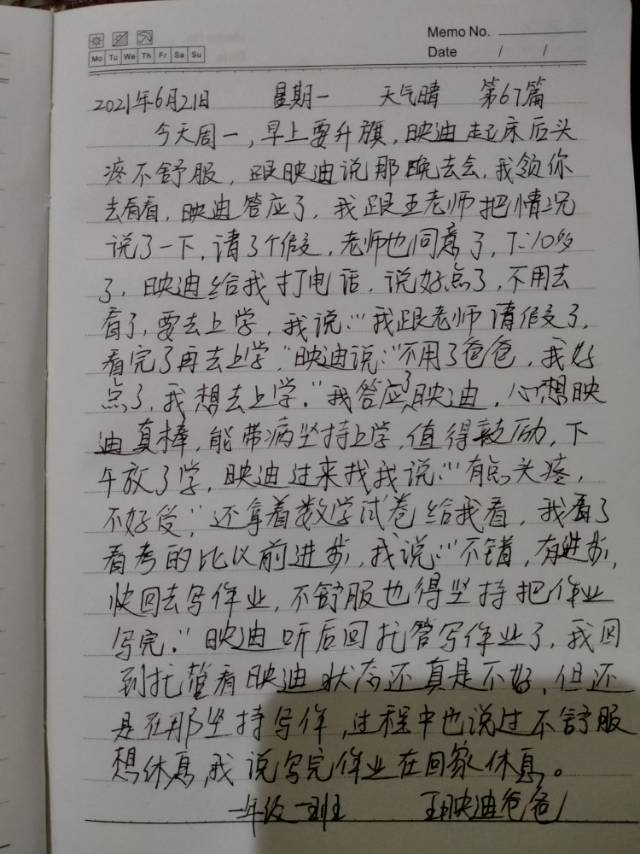 Memo No.
Mo Tu We Th Fr Sa Su
Date / /
2021年6月21日 星期一 天气晴 第67篇
今天周一,早上要升旗,映迪起床后头
疼不舒服,跟映迪说那晚去会,我领你
去看看,映迪答应了,我跟王老师把情况
说了一下,请了个假,老师也同意了,下:10多
了,映迪给我打电话,说好点了,不用去
看了,要去上学,我说:"我跟老师请假了,
看完了再去上学,"映迪说:"不用了爸爸,我好
点了,我想去上学,"我答应了映迪,心想映
迪真棒,能带病坚持上学,值得鼓励,下
午放了学,映迪过来找我说:"有点头疼,
不好受",还拿着数学试卷给我看,我看了
看考的比以前进步,我说:"不错,有进步,
快回去写作业,不舒服也得坚持把作业
写完."映迪听后回托管写作业了,我回
到托管看映迪状态还真是不好,但还
是在那坚持写作,过程中也说过不舒服
想休息,我说写完作业在回家休息。
一年级一班 王映迪爸爸